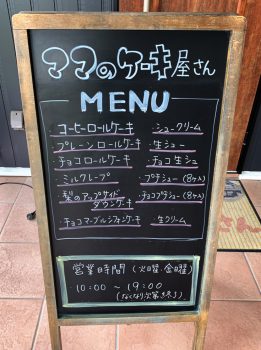 ママのケーキ屋さん
MENU
・コーヒーロールケーキ ・シュークリーム
・プレーンロールケーキ ・生シュー
・チョコロールケーキ ・チョコ生シュー
・ミルクレープ ・プチシュー(8ヶ入)
・梨のアップサイドダウンケーキ ・チョコプチシュー(8ヶ入)
・チョコマーブルシフォンケーキ ・生クリーム
営業時間(火曜.金曜)
10:00 〜 19:00
(なくなり次第終了)
さん